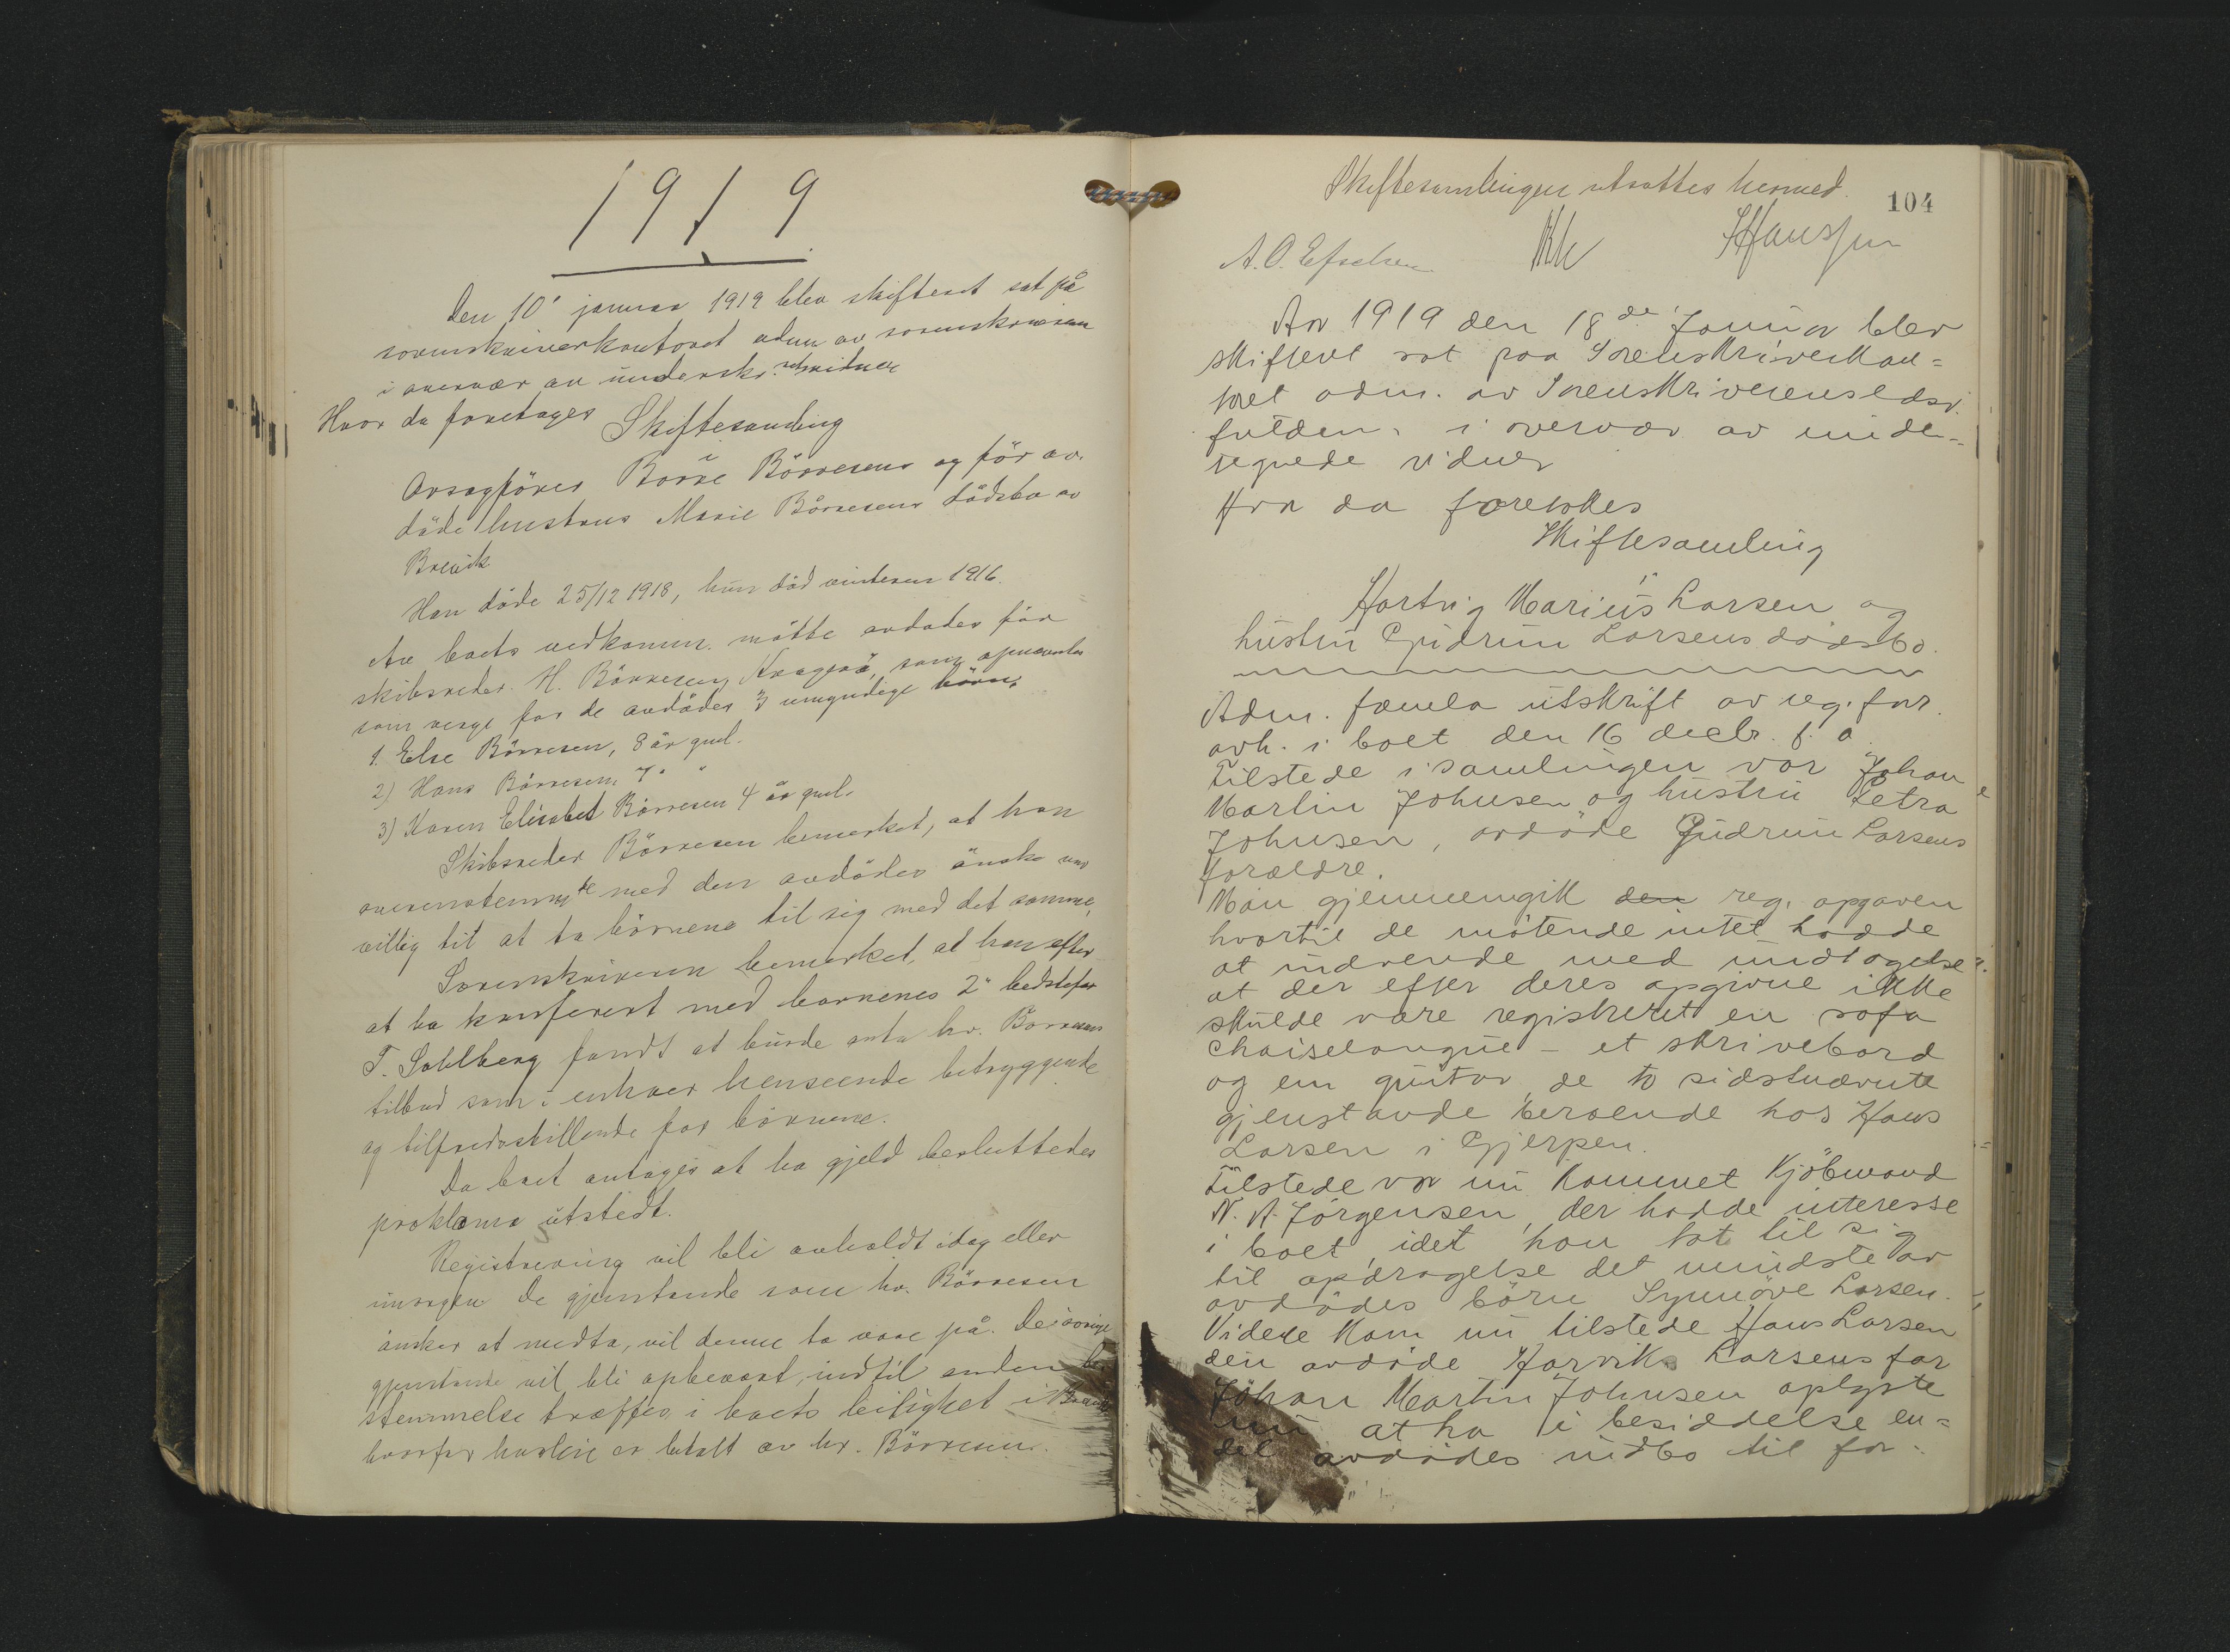 1919
Den 10' januar 1919 blev skifteret sat på
sorenskriverkontoret adm av sorenskriveren
i overvær av underskr. retsvidner
Hvor da foretages Skiftesamling
i
Orsagfører Börre Börresens og før av-
døde hustrus Marie Börresens dødsbo av
Brevik
Han døde 25/12 1918, hun død vinteren 1916.
Av boets vedkomm. møtte avdødes far
skibsreder H. Börresen, Kragerø, som opnævntes
som verge for de avdødes 3 umyndige børn:
1. Else Börresen, 8 år gml.
2) Hans Börresen 7 " "
3) Karen Elisabet Börresen 4 år gml.
Skibsreder Börresen bemerket, at han
overensstemmde med den avdødes ønske var
villig til at ta børnene til sig med det samme.
Sorenskriveren bemerket, at han efter
at ha konferert med barnenes 2' bedstefar
T. Sahlberg fandt at burde anta hr. Börresens
tilbud som i enhver henseende betryggende
og tilfredsstillende for børnene.
Da boet antages at ha gjeld besluttedes
proklama utstedt.
Registrering vil bli avholdt idag eller
imorgen De gjenstande som hr. Börresen
ønsker at medta, vil denne ta vare på. De øvrige
gjenstande vil bli opbevart, indtil anden be-
stemmelse træffes i boets leilighet i Brevik
hvorfor husleie er betalt av hr. Börresen.
Skiftesamlingen utsattes hermed.
104
Aar 1919 den 18de Januar blev
skifteret sat paa Sorenskriverkon=
toret adm. av Sorenskriverens edsv.
fuldm. i overvær av under=
tegnede vidner
Hvor da foretokes
Skiftesamling
i
Hartvig Marius Larsen og
hustru Gudrun Larsens dødsbo.
Adm. fremla utskrift av reg. forr.
avh. i boet den 16 decbr. f. a
Tilstede i samlingen var Johan
Martin Johnsen og hustru Petra
Johnsen, avdøde Gudrun Larsens
forældre.
Man gjennemgik den reg. opgaven
hvortil de møtende intet hadde
at indvende med undtagelse a.
at der efter deres opgivne ikke
skulde være registreret en sofa
chaiselongue – et skrivebord
og en guitar, de to sidstnævnte
gjenstande beroende hos Hans
Larsen i Gjerpen.
Tilstede var nu kommet Kjöbmand
N. A. Jörgensen, der hadde interesse
i boet idet han tok til sig
til opdragelse det mindste av
avdødes børn Synnöve Larsen.
Videre kom nu tilstede Hans Larsen
den avdøde Harviks Larsens far
Johan Martin Johnsen oplyste
nu at ha i besiddelse en=
del avdødes indbo til for-